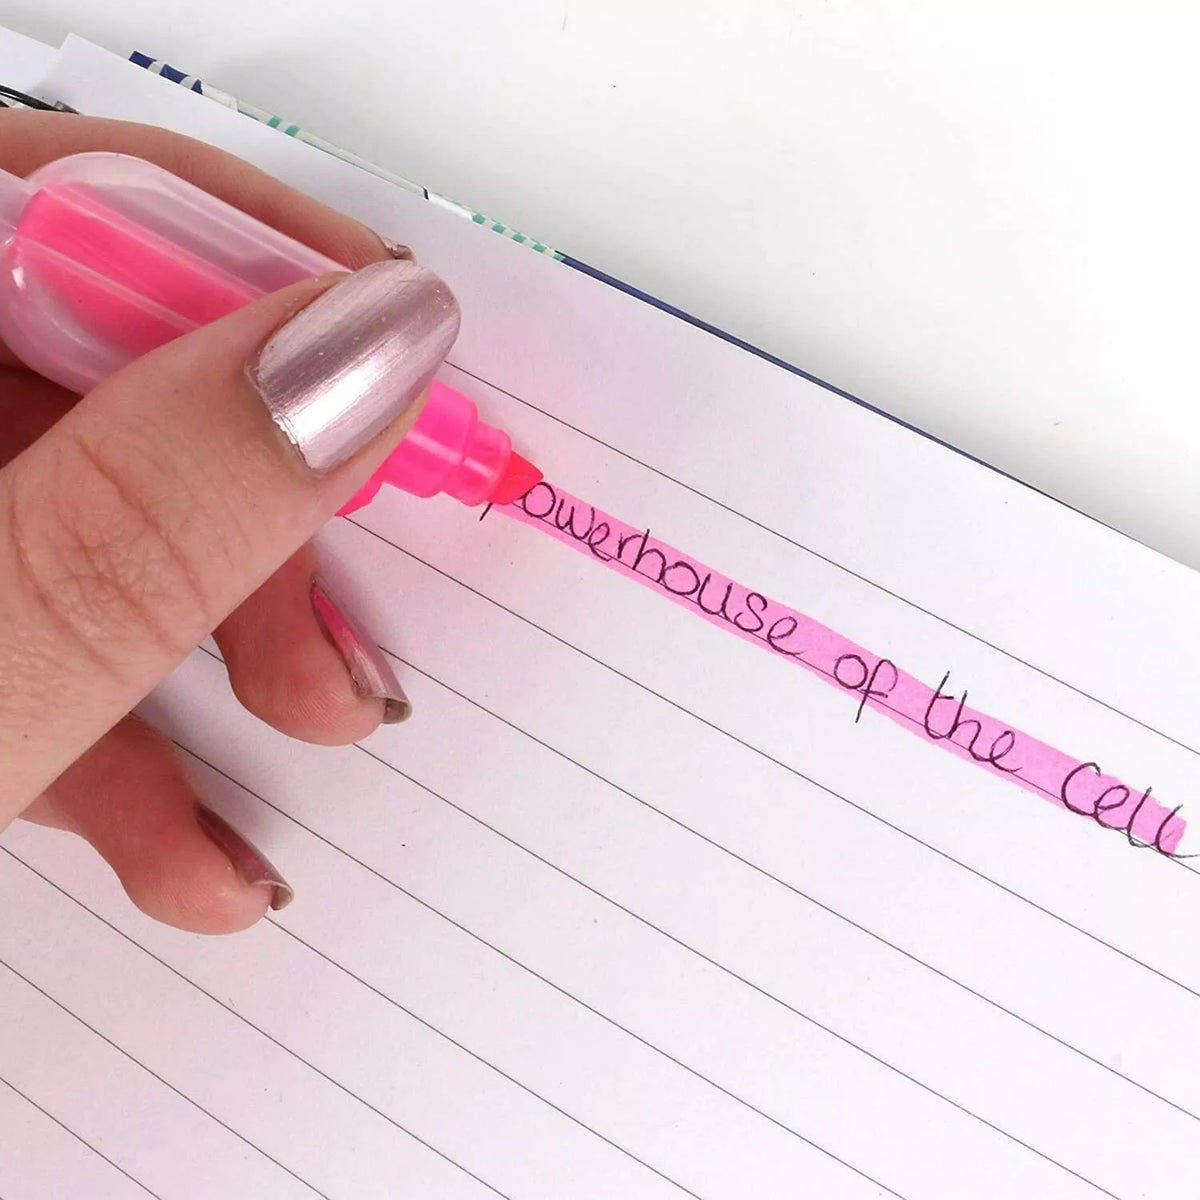 powerhouse of the Cell